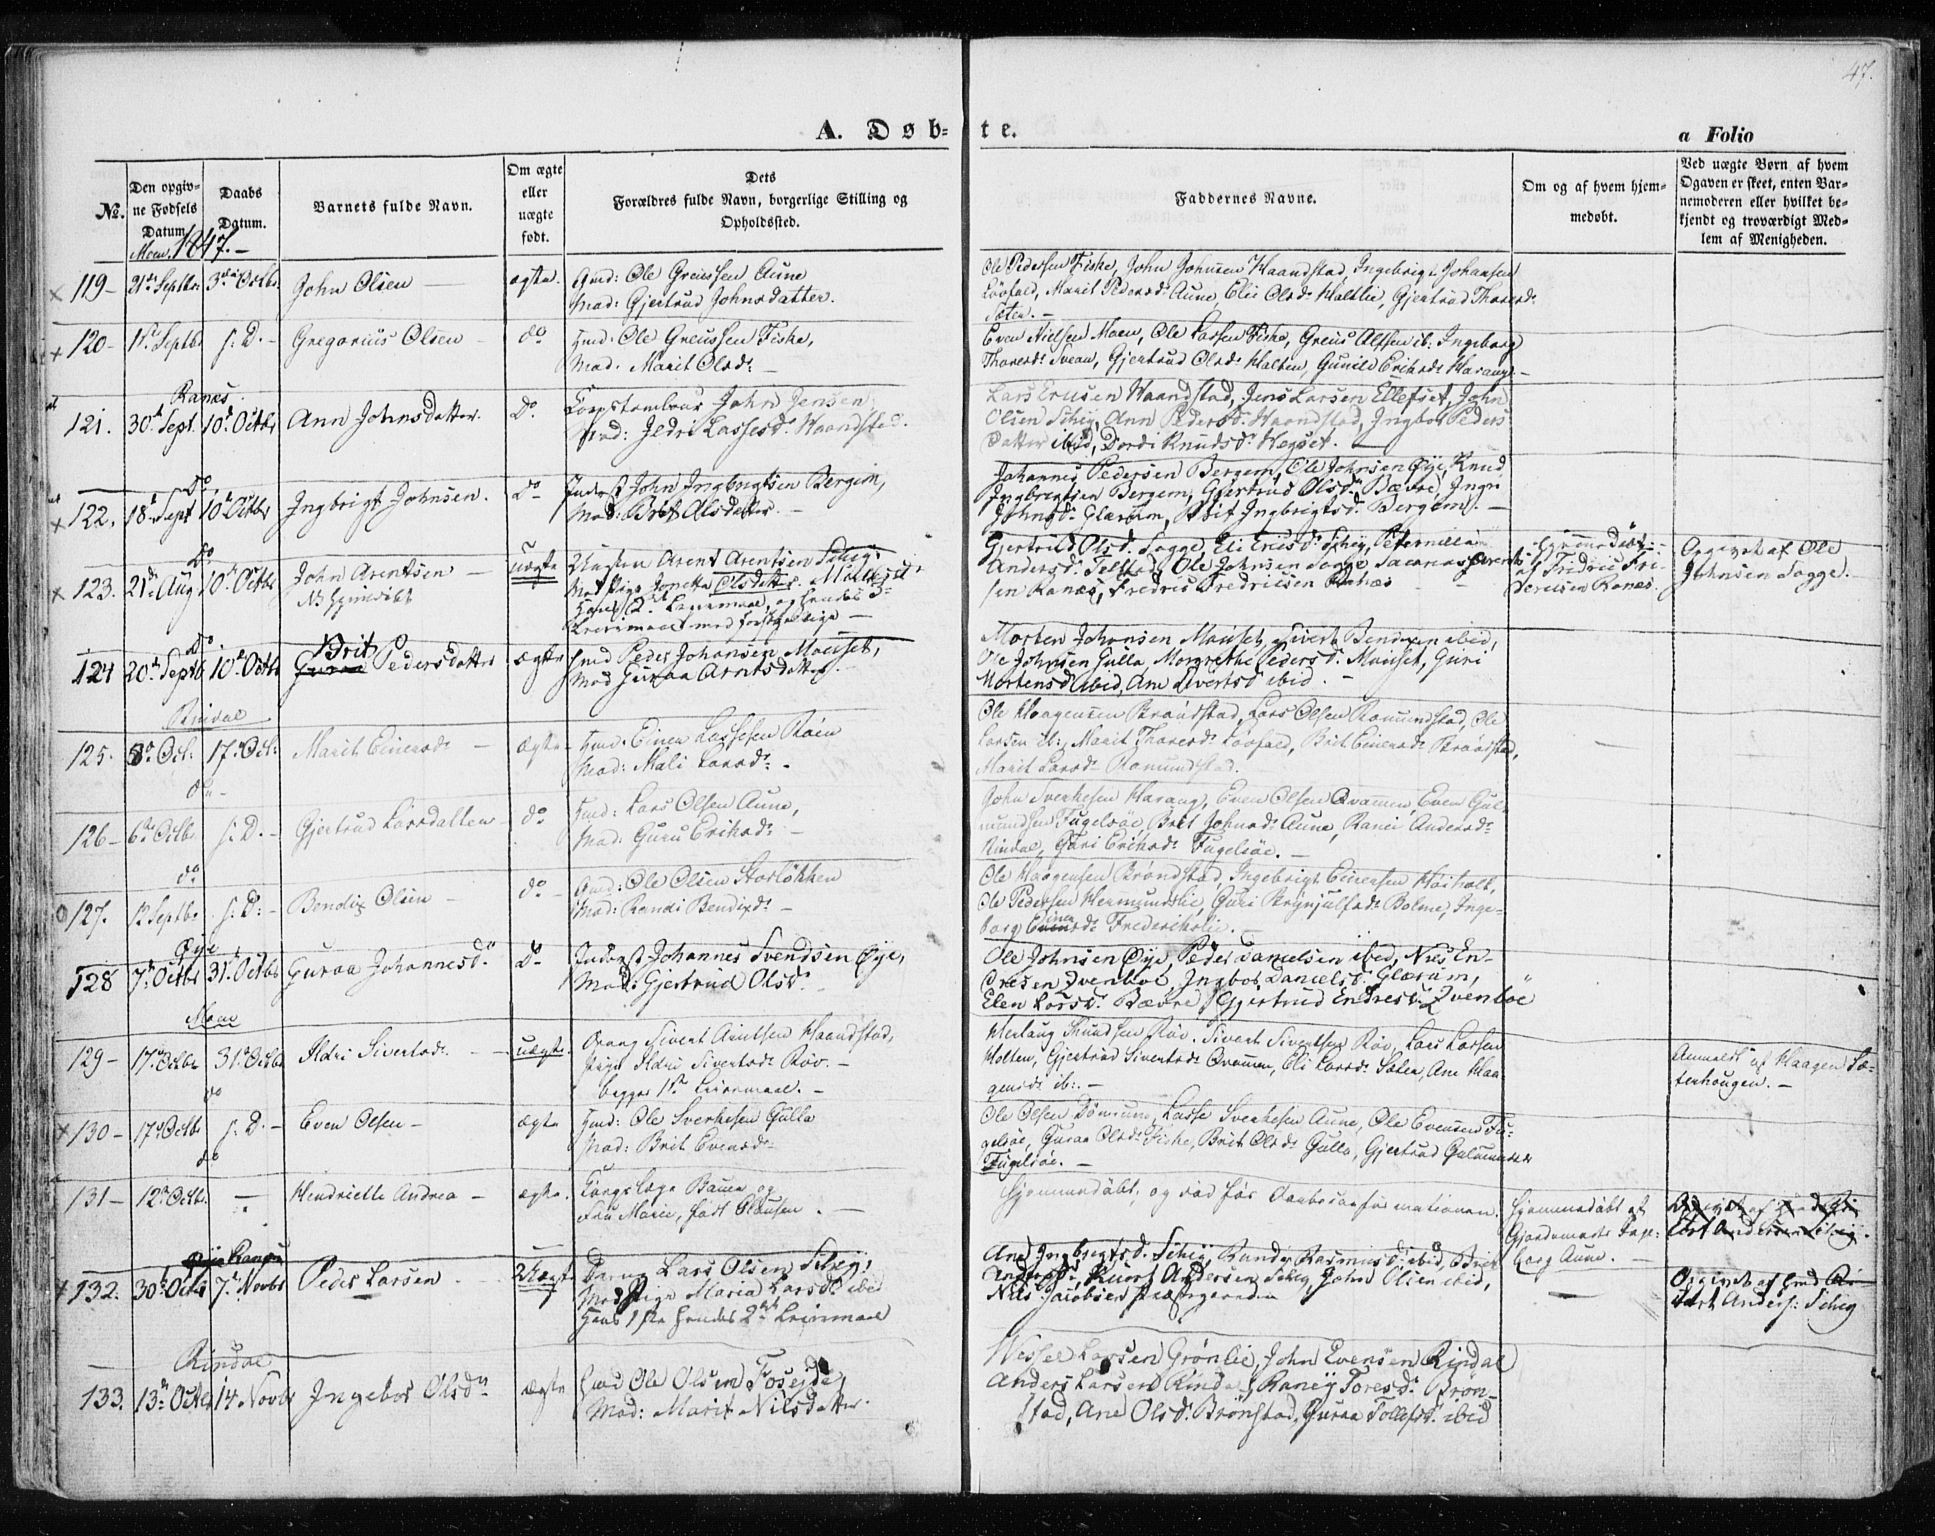 47.
A. Døb-
te.
a Folio
No.
Den opgiv-
ne Fødsels
Datum.
Daabs
Datum.
Barnets fulde Navn.
Om ægte
eller
uægte
født.
Dets
Forældres fulde Navn, borgerlige Stilling og
Opholdssted.
Faddernes Navne.
Om og af hvem hjem-
medøbt.
Ved uægte Børn af hvem
Ogaven er skeet, enten Bar-
nemoderen eller hvilket be-
kjendt og troværdigt Med-
lem af Menigheden.
Moen. 1847.
119 21de Septbr 3die Octbr John Olsen ægte. Gmd: Ole Greussen Aune
Mod: Gjertrud Johnsdatter.
Ole Pedersen Fiske, John Johnsen Haandstad, Ingebrigt Johansen
Løvfald, Marit Pedersd. Aune, Eli Olsd. Haltlie, Gjertrud Thoresd.
Sæter.
120 1ste Septbr s. D. Gregorius Olsen do Hmd: Ole Greussen Fiske,
Mod. Marit Olsd:
Even Nielsen Moen, Ole Lassen Fiske, Greus Alfsen ib: Ingeborg
Thoresd: Svean, Gjertrud Olsd: Halten, Gunild Eriksd: Harang.
Ranes.
121. 30te Sept. 10de Octbr Ann Johnsdatter. Do. Corpstambour John Jensen
Mod: Ildri Lassesd. Haandstad.
Lars Ericsen Haandstad, Jens Larsen Ellefset, John
Olsen Schig, Ann Pedersd. Haandstad, Ingbor Peders
Datter ibid, Dordi Knudsd. Hegset.
Do
122. 18de Sept 10de Octbr Ingbrigt Johnsen. Do Inderst John Ingbrigtsen Bergem,
Mod: Brit Olsdatter.
Johannes Pedersen Bergem, Ole Johnsen Øye, Knud
Ingbrigtsen Bergem, Gjertrud Olsd. Bævre, Ingri
Johnsd. Glærum, Brit Ingbrigtsd. Bergem.
Do
123. 21de Aug 10de Octbr John Arentsen uægte Ungkarl Arent Arentsen Schig,
Nb Hjemdøbt
Mod Pige Jonetta Olsdatter
Hans 2d. Leiermaal, og hendes 3d
Leiermaal med forskjellige
Gjertrud Olsd. Sogge, Eli Ericsd. Schig, Peternilla
Andersd. Ole Johnsen Sogge
sen Ranæs, Fredric Fredricsen Ranæs
Hjemmedøbt
af Fridric Fri-
dericsen Ranæs.
Opgivet af Ole
Johnsen Sogge.
Do
124 20de Septb 10de Octbr Brit Guraa Pedersdatter ægte Hmd Peder Johansen Mauset,
Mod Guraa Arntsdatter.
Morten Johansen Mauset, Sivert Bendixen ibid,
Ole Johnsen Gulla, Margrethe Pedersd. Mauset, Guri
Mortensd ibid, Ane Sivertsd ibid.
Rindal
125. 8de Oct: 17de Oct: Marit Einersd: ægte Hmd. Einer Lassesen Røen
Mod: Mali Larsd:
Ole Haagensen Brøndstad, Lars Olsen Romundstad, Ole
Larsen ib:, Marit Thoresd: Løvfald, Brit Einersd: Brøndstad,
Marit Larsd: Romundstad.
do
126 6te Octbr s. D. Gjertrud Larsdatter do Hmd: Lars Olsen Aune,
Mod: Guru Eriksd:
John Sverkesen Harang, Even Olsen Qvamen, Even Gul-
mundsen Fugelsøe, Brit Johnsd: Aune, Ranei Andersd:
Rindal, Guri Eriksd: Fugelsøe.
do
127. 12 Septbr s. D: Bendix Olsen do Gmd: Ole Olsen Storløkken
Mod: Randi Bendixd:
Ole Haagensen Brøndstad, Ingebrigt Einersen Høiholt,
Ole Pedersen Hermundslie, Guri Brynjulfsd: Bolme, Inge-
borg Einersd: Frederikslie.
Øye
128 7de Octbr 31te Octbr Guraa Johannesd. Do Inderst Johannes Svendsen Øye,
Mod: Gjertrud Olsd.
Ole Johnsen Øye, Peder Danielsen ibid, Niels En-
dresen Zvenbøe, Ingbor Danielsd. Glærum,
Elen Larsd. Bævre, Gjertrud Endresd. Zvenbøe
Moen
129 17de Octbr 31te Octbr Ildri Sivertsd: uægte. Dreng Sivert Arntsen Haandstad,
Pige Ildri Sivertsd: Røv.
begges 1ste Leiermaal.
Herlaug Røv. Sivert Sivertsen Røv, Lars Larsen
Holten, Gjertrud Sivertsd: Qvamen, Eli Larsd: Sæter, Ane Haa-
gensd: ib:.
Anmeldt af Haagen Sæ-
terhougen.
do
130 17de Octbr s. D. Even Olsen ægte Hmd: Ole Sverkesen Gulla
Mod: Brit Evensd:
Ole Olsen Dønnum, Lasse Sverkesen Aune, Ole Evensen Fu-
gelsøe, Guraa Olsd: Fiske, Brit Olsd: Gulla, Gjertrud Gulmundsd:
Fugelsøe.
do
131 12te Octb. Hendrielle Andrea ægte. Corpslæge Bauer og
Fru Marie, født Clausen.
Hjemmedøbt, og død før Daabsconfirmationen.
Hjemmedøbt af
Gjordemoder Inge-
borg Aune.
Øye Ranes
132. 30te Octbr 7de Novbr Peder Larsen Uægt Dreng Lars Olsen Schig,
Mod Pige Maria Larsd. ibid
Hans 1ste hendes 2det Leiermaal
Ane Ingbrigtsd. Schig, Randi Rasmusd. ibid, Brit
Andersd, Knort Andersen Schig, John Olsen ibid,
Nils Jacobsen Præstgaarden
Opgivet af Hmd
Andersen Schig
Rindal
133. 13de Octbr 14 Novbr Ingebor Olsd. ægte Hmd Ole Olsen Foseide,
Mod: Marit Nilsdatter.
Wessel Larsen Grønlie, John Evensen Rindal
Anders Larsen Rindal, Raney Toresd. Brøn-
stad, Ane Olsd. Brønstad, Guraa Tollefsd. ibid